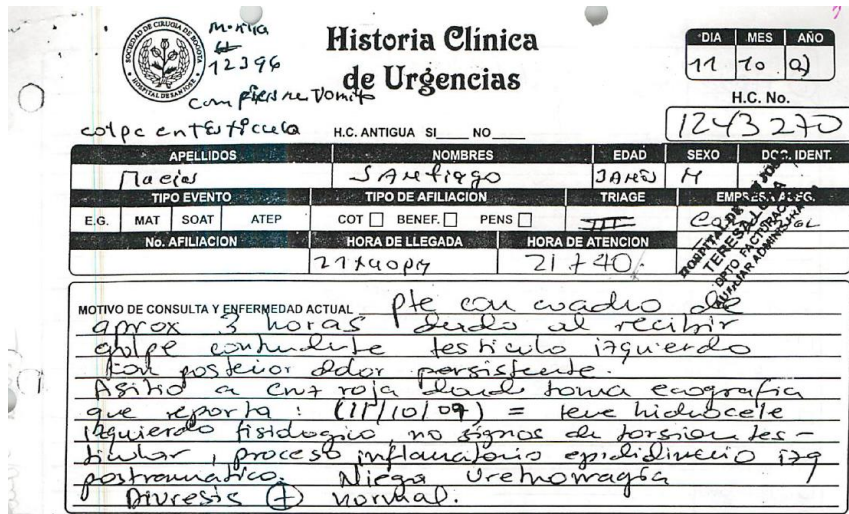 SOCIEDAD DE CIRUGIA DE BOGOTA
HOSPITAL DE SAN JOSE
12396
Historia Clínica
de Urgencias
DIA MES AÑO
11 10 09
H.C. No.
1243270
H.C. ANTIGUA SI NO
APELLIDOS NOMBRES EDAD SEXO DOC. IDENT.
Macias Santiago M
TIPO EVENTO TIPO DE AFILIACION TRIAGE
E.G. MAT SOAT ATEP COT BENEF. PENS III
No. AFILIACION HORA DE LLEGADA HORA DE ATENCION
21+40.
HOSPITAL DE SAN JOSE
DPTO FACTURACION
MOTIVO DE CONSULTA Y ENFERMEDAD ACTUAL Pte con cuadro de
aprox 3 horas al recibir
golpe contundente testiculo izquierdo
con posterior dolor persistente.
Asitio a Cruz roja donde toma ecografia
que reporta: (11/10/09) = leve hidrocele
izquierdo fisiologico, no signos de torsion tes-
ticular, proceso inflamatorio epididimario izq
postraumático. Niega Uretrorragia
Diuresis (+) normal.